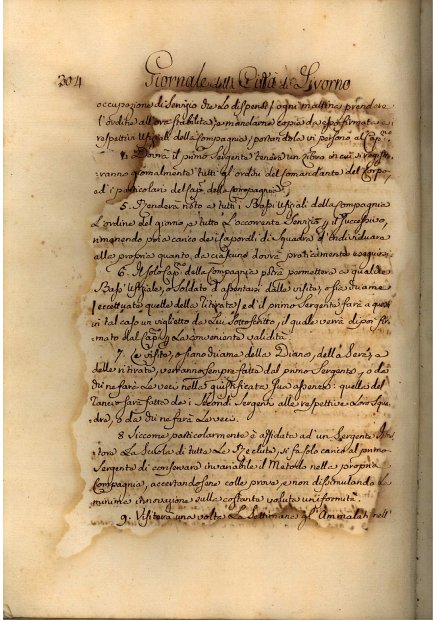 304 Giornale della Città di Livorno
occupazione di Servizio di lo dispensi ogni mattina prendere
l'ordine all'ora stabilita, e mandarne copia da esso firmata a i
respettivi Ufiziali della Compagnia, portandola in persona al Cap.
4. Dovrà il primo Sergente tenere un Libro in cui si registr-
ranno giornalmente tutti gli ordini del Comandante del Corpo
ed i particolari del Cap. della Compagnia.
5. Renderà noto a tutti i Bassi Ufiziali della Compagnia
L'ordine del giorno, e tutto l'occorrente Servizio, il Successivo,
rimanendo poi a carico dei Caporali di Squadra d'individuare
alla propria quanto, da ciascuno dovrà praticamente eseguirsi.
6. Il solo Cap. della Compagnia potrà permettere a qualche
Bass' Uffiziale, o Soldato d'assentarsi dalla visita, o sia duame
eccettuate quelle della Ritirata, ed il primo Sergente farà a questi
in tal caso un viglietto da Lui Sottoscritto, il quale verrà di poi fir-
mato dal Cap. La conveniente validità.
7. Le visite, o siano duame della Diana, della Sera, e
della ritirata, verranno sempre fatte dal primo Sergente, o da
chi ne farà Le veci nella giustificata Sua assenza: quella del
sarà fatta da i Secondi Sergenti alle respettive Loro Squa-
dre, o da chi ne farà Le veci.
8 Siccome particolarmente è affidata ad un Sergente
La Scuola di tutte Le Reclute, si fa solo carico al primo
Sergente di conservare invariabile il Metodo nella propria
Compagnia, accertandosene colle prove, e non
minima innovazione sulla costante voluta uniformità.
9. Visiterà una volta La Settimana gl' Ammalati nell'